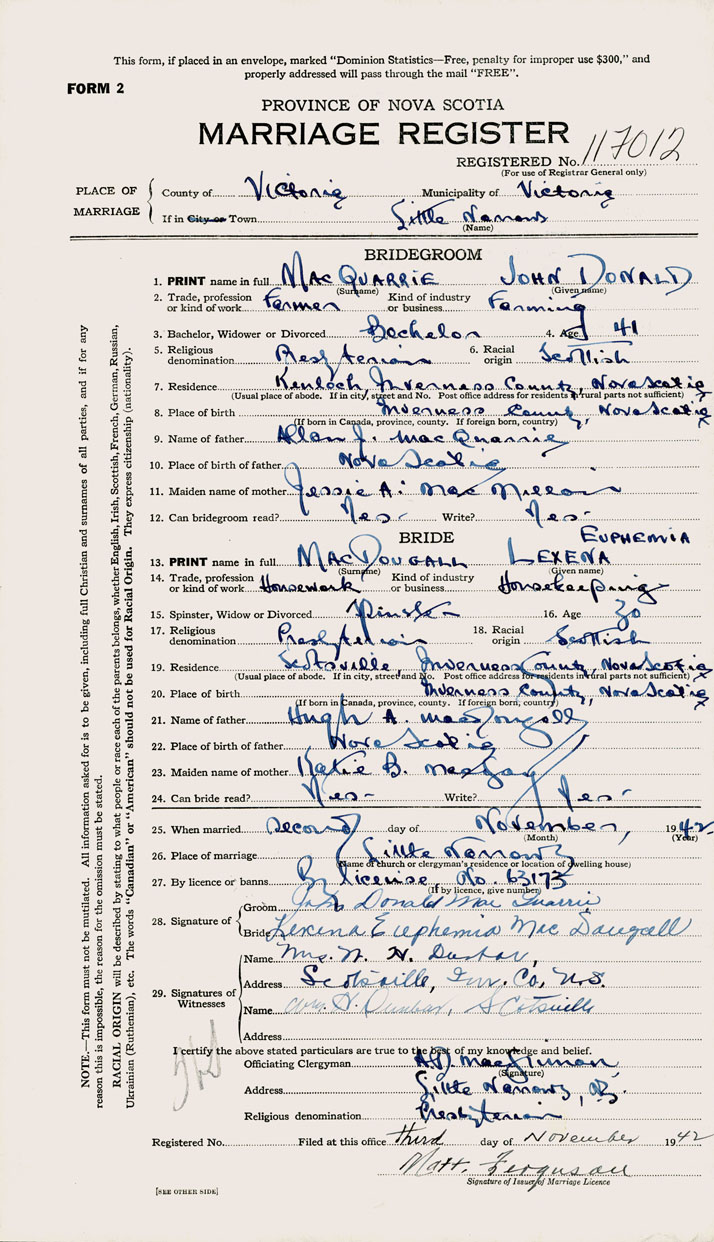 This form, if placed in an envelope, marked "Dominion Statistics—Free, penalty for improper use $300," and
properly addressed will pass through the mail "FREE".
FORM 2
PROVINCE OF NOVA SCOTIA
MARRIAGE REGISTER
REGISTERED No. 117012
(For use of Registrar General only)
PLACE OF MARRIAGE
County of Victoria Municipality of Victoria
If in City or Town Little Narrows
(Name)
BRIDEGROOM
1. PRINT name in full MacQUARRIE JOHN DONALD
(Surname) (Given name)
2. Trade, profession or kind of work Farmer Kind of industry or business Farming
3. Bachelor, Widower or Divorced Bachelor 4. Age 41
5. Religious denomination Presbyterian 6. Racial origin Scottish
7. Residence Kenloch Inverness County, Nova Scotia
(Usual place of abode. If in city, street and No. Post office address for residents in rural parts not sufficient)
8. Place of birth Inverness County, Nova Scotia
(If born in Canada, province, county. If foreign born, country)
9. Name of father Allan J. MacQuarrie
10. Place of birth of father Nova Scotia
11. Maiden name of mother Jessie A. MacMillan
12. Can bridegroom read? Yes- Write? Yes-
BRIDE EUPHEMIA
13. PRINT name in full MacDOUGALL LEXENA
(Surname) (Given name)
14. Trade, profession or kind of work Housework Kind of industry or business Housekeeping
15. Spinster, Widow or Divorced Spinster 16. Age 30
17. Religious denomination Presbyterian 18. Racial origin Scottish
19. Residence Scotsville, Inverness County, Nova Scotia
(Usual place of abode. If in city, street and No. Post office address for residents in rural parts not sufficient)
20. Place of birth Inverness County, Nova Scotia
(If born in Canada, province, county. If foreign born, country)
21. Name of father Hugh A. MacDougall
22. Place of birth of father Nova Scotia
23. Maiden name of mother Katie B. MacKay
24. Can bride read? Yes- Write? Yes-
25. When married Second day of November, 1942
(Month) (Year)
26. Place of marriage Little Narrows
(Name of church or clergyman's residence or location of dwelling house)
27. By licence or banns By license No. 63173
(If by licence, give number)
28. Signature of
Groom John Donald MacQuarrie
Bride Lexena Euphemia MacDougall
29. Signatures of Witnesses
Name Mrs. W. H. Dunbar,
Address Scotsville, Inv. Co, N.S.
Name Wm. H. Dunbar, Scotsville
Address
I certify the above stated particulars are true to the best of my knowledge and belief.
Officiating Clergyman A.D. MacKinnon
(Signature)
Address Little Narrows,
Religious denomination Presbyterian
Registered No. Filed at this office third day of November 1942
Matt. Ferguson
Signature of Issuer of Marriage Licence
[SEE OTHER SIDE]
NOTE.—This form must not be mutilated. All information asked for is to be given, including full Christian and surnames of all parties, and if for any
reason this is impossible, the reason for the omission must be stated.
RACIAL ORIGIN will be described by stating to what people or race each of the parents belongs, whether English, Irish, Scottish, French, German, Russian,
Ukrainian (Ruthenian), etc. The words "Canadian" or "American" should not be used for Racial Origin. They express citizenship (nationality).